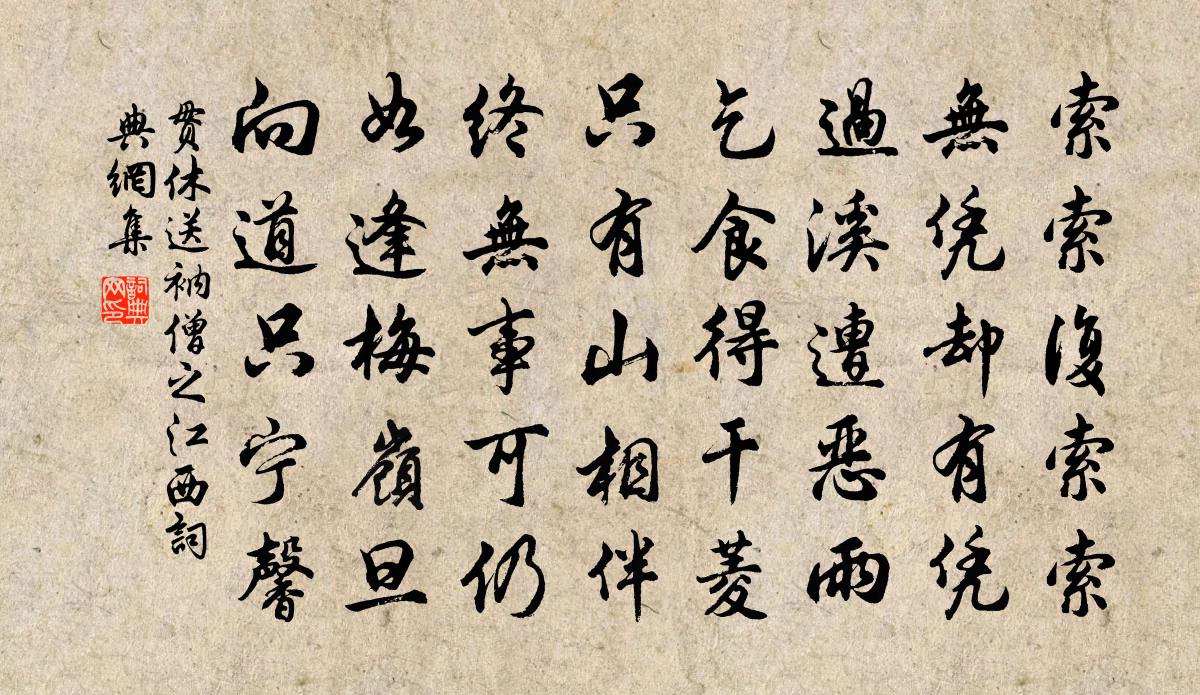 索索復索索
無凭却有凭
過溪遭惡雨
乞食得干菱
只有山相伴
終無事可仍
如逢梅嶺旦
向道只宁馨
貫休送衲僧之江西詞
典網集
詞典
网印